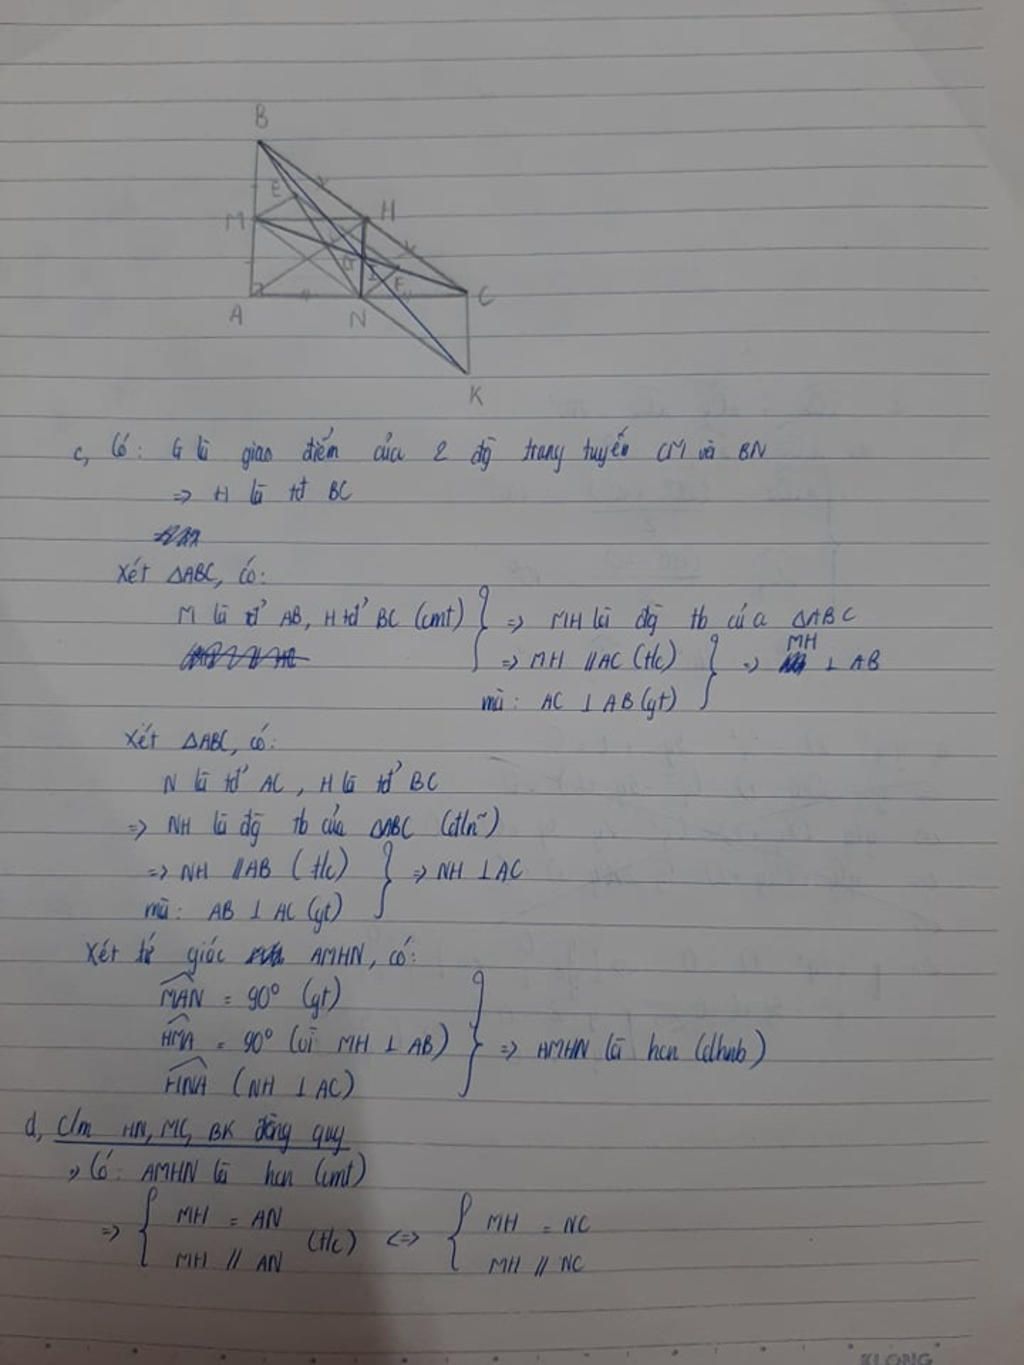 B
E
M
H
G
I
F
C
A
N
K
c, Có: G là giao điểm của 2 đg trung tuyến CM và BN
=> H là tđ BC
Xét ΔABC, có:
M là tđ AB, H tđ BC (cmt) } => MH là đg tb của ΔABC
=> MH // AC (t/c) } => MH ⊥ AB
mà: AC ⊥ AB (gt)
Xét ΔABC, có:
N là tđ AC, H là tđ BC
=> NH là đg tb của ΔABC (đ/n)
=> NH // AB (t/c) } => NH ⊥ AC
mà: AB ⊥ AC (gt)
Xét tứ giác AMHN, có:
MAN = 90° (gt)
HMA = 90° (vì MH ⊥ AB) } => AMHN là hcn (dhnb)
HNA (NH ⊥ AC)
d, C/m HN, MC, BK đồng quy
Có: AMHN là hcn (cmt)
=> { MH = AN (t/c) <=> { MH = NC
MH // AN MH // NC
KLONG